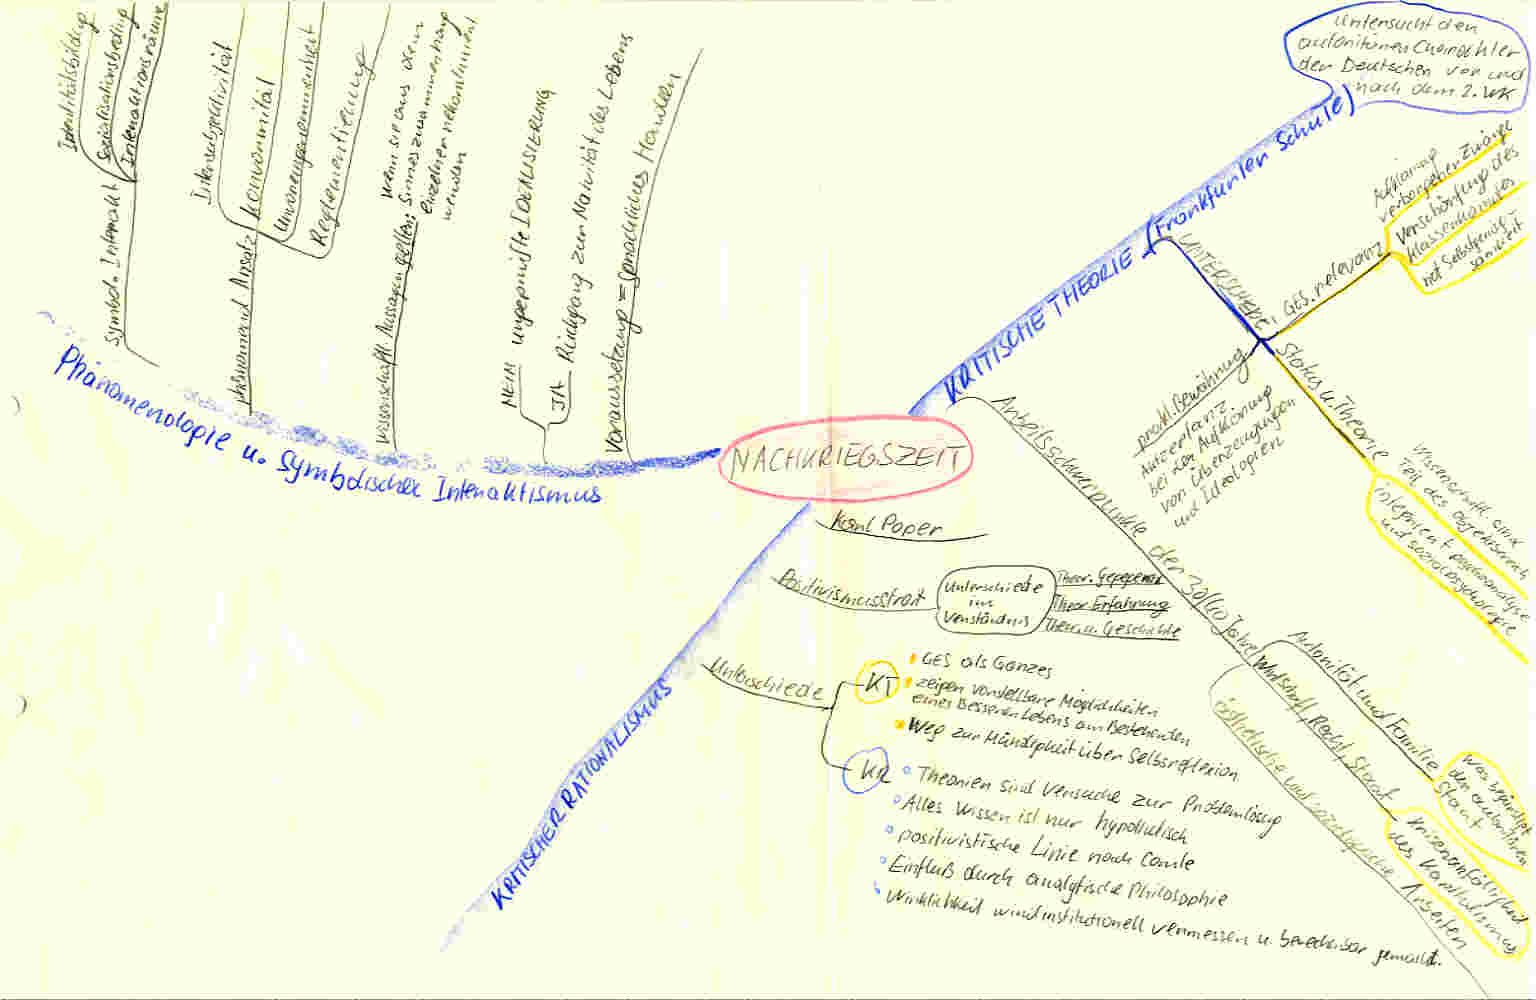 NACHKRIEGSZEIT
Phänomenologie u. Symbolischer Interaktismus
Symbol. Interakt
Identitätsbildung
Sozialisationsbeding
Interaktionsräume
phänomenol Ansatz
Intersubjektivität
Konformität
Unvoreingenommenheit
Reglementierung
Wissenschaftl. Aussagen gelten:
wenn sie aus dem
Sinneszusammenhang
einzelner rekonstruiert
werden
NEIN ungeprüfte IDEALISIERUNG
JA Rückgang zur Naivität des Lebens
Voraussetzung = sprachliches Handeln
KRITISCHE THEORIE (Frankfurter Schule)
untersucht den
autoritären Charackter
der Deutschen vor und
nach dem 2. WK
UNTERSCHEDE:
GES. relevanz
Aufklärung
verborgener Zwänge
Verschärfung des
Klassenkampfes
net Selbstgenüg-
samkeit
Status u. Theorie
Wissenschaftl. sind
Teil des Objektbereich
integriert psychoanalyse
und sozialpsychologie
prakt. Bewährung
Akzeptanz
bei der Aufklärung
von Überzeugungen
und Ideologien
Arbeitsschwerpunkte der 30/40 Jahre
Autorität und Familie
Was begünstigt
den autoritären
Staat
Wirtschaft, Recht, Staat
Krisenanfälligkeit
des Kapitalismus
ästhetische und soziologische Arbeiten
KRITISCHER RATIONALISMUS
Karl Poper
Positivismusstreit
Unterschiede
im
Verständnis
Theor. Gegegenst
Theor. Erfahrung
Theor. u. Geschichte
Unterschiede
KT
GES als Ganzes
zeigen vorstellbare Möglichkeiten
eines Besseren Lebens am Bestehenden
Weg zur Mündigkeit über Selbsreflexion
KR
Theorien sind Versuche zur Problemlösug
Alles Wissen ist nur hypothetisch
positivistische Linie nach Comte
Einfluß durch analytische Philosophie
Wirklichkeit wird institutionell vermessen u. berechnbar gemacht.